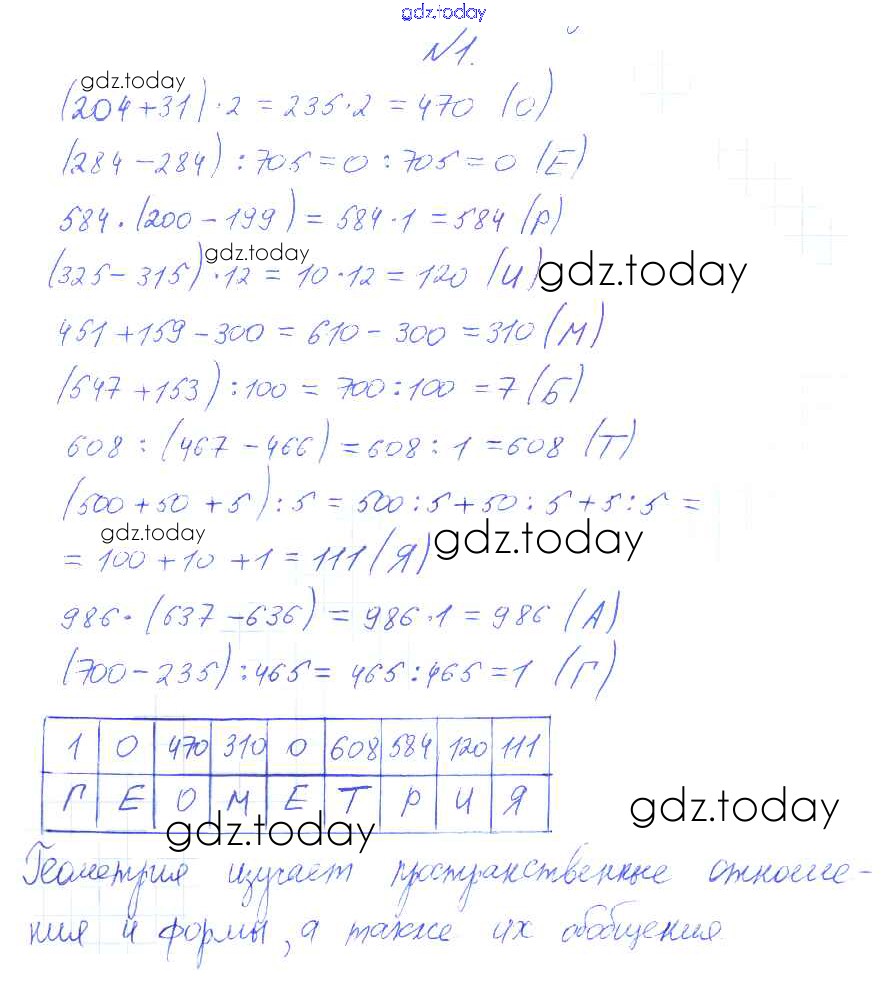 gdz.today
№1.
gdz.today
(204+31)·2 = 235·2 = 470 (О)
(284-284):705 = 0:705 = 0 (Е)
584·(200-199) = 584·1 = 584 (Р)
gdz.today
(325-315)·12 = 10·12 = 120 (И)
gdz.today
451+159-300 = 610-300 = 310 (М)
(547+153):100 = 700:100 = 7 (Б)
608:(467-466) = 608:1 = 608 (Т)
(500+50+5):5 = 500:5+50:5+5:5 =
gdz.today
= 100+10+1 = 111 (Я)
gdz.today
986·(637-636) = 986·1 = 986 (А)
(700-235):465 = 465:465 = 1 (Г)
1 0 470 310 0 608 584 120 111
Г Е О М Е Т Р И Я
gdz.today
gdz.today
Геометрия изучает пространственные отноше-
ния и формы, а также их обобщения